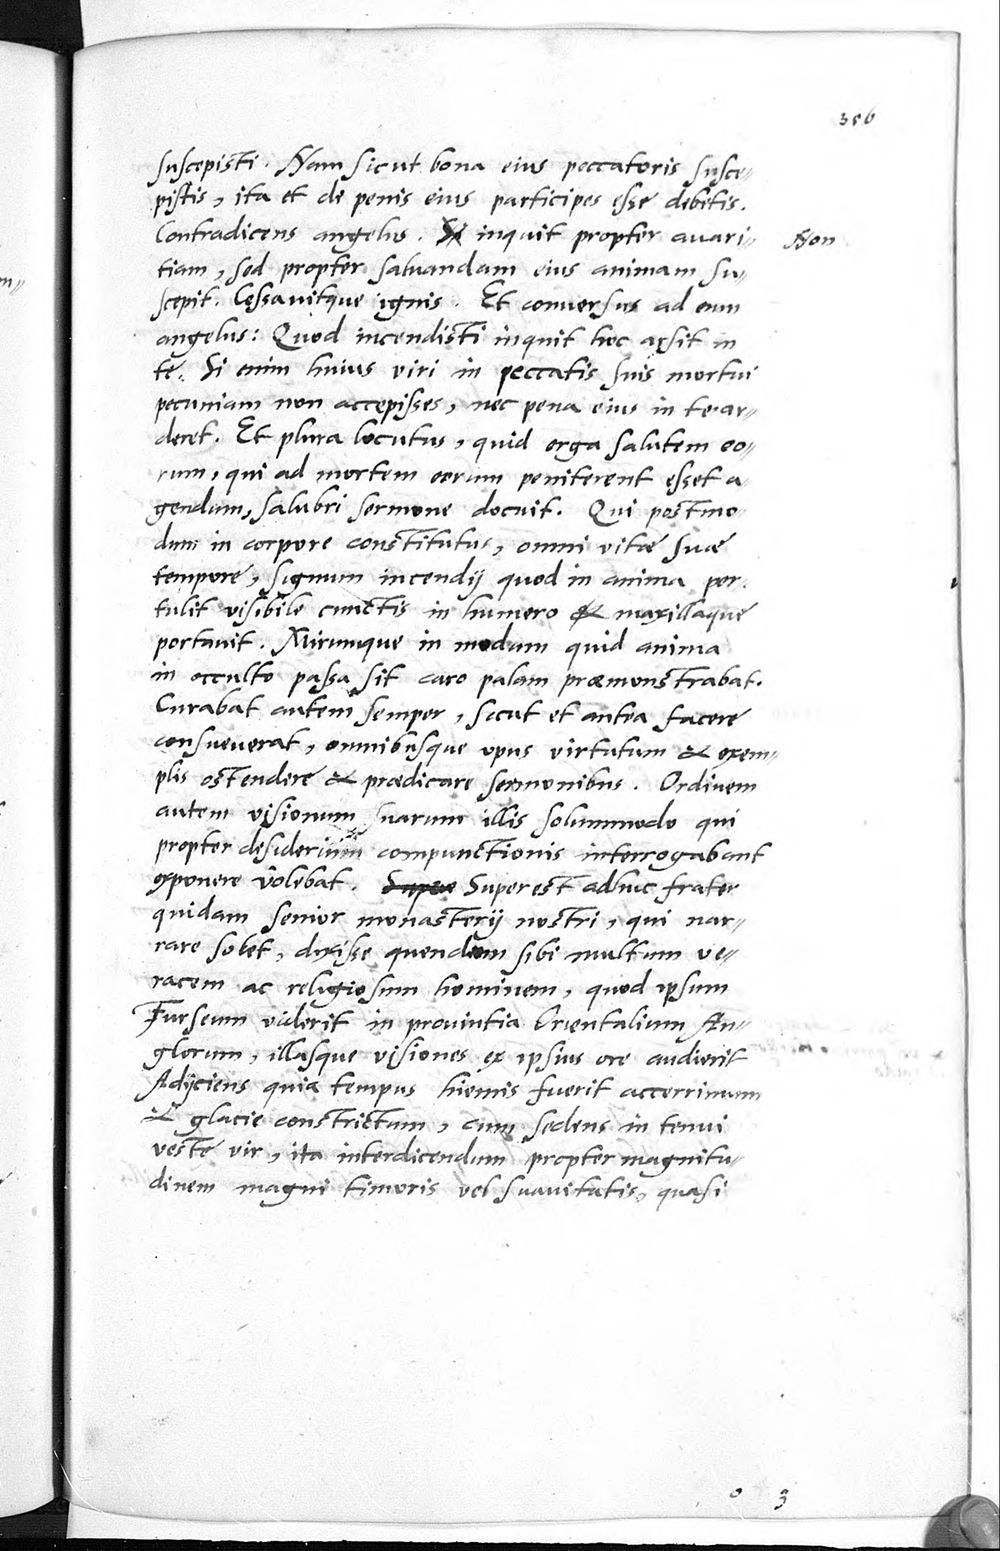 356
suscepisti. Nam sicut bona eius peccatoris susce-
pistis, ita et de penis eius participes esse debetis.
Contradicens angelus. Si inquit propter avari- Non
tiam, sed propter salvandam eius animam su-
scepit. Cessavitque ignis. Et conversus ad eum
angelus: Quod incendisti inquit hoc arsit in
te. Si enim huius viri in peccatis suis mortui
pecuniam non accepisses, nec pena eius in te ar-
deret. Et plura locutus, quid erga salutem eo-
rum, qui ad mortem eorum peniterent esset a-
gendum, salubri sermone docuit. Qui postmo-
dum in corpore constitutus, omni vitæ suæ
tempore, signum incendij quod in anima per-
tulit visibile cunctis in humero & maxillaque
portavit. Mirumque in modum quid anima
in occulto passa sit caro palam præmonstrabat.
Curabat autem semper, sicut et antea facere
consueverat, omnibusque opus virtutum & exem-
plis ostendere & prædicare sermonibus. Ordinem
autem visionum suarum illis solummodo qui
propter desiderium compunctionis interrogabant
exponere volebat. Superest adhuc frater
quidam senior monasterij nostri, qui nar-
rare solet, dixisse quendam sibi multum ve-
racem ac religiosum hominem, quod ipsum
Furseum viderit in provintia Orientalium An-
glorum, illasque visiones ex ipsius ore audierit
Adijciens quia tempus hiemis fuerit accerrimum
& glacie constrictum, cum sedens in tenui
veste vir, ita interdicendum propter magnitu-
dinem magni timoris vel suavitatis, quasi
o 3